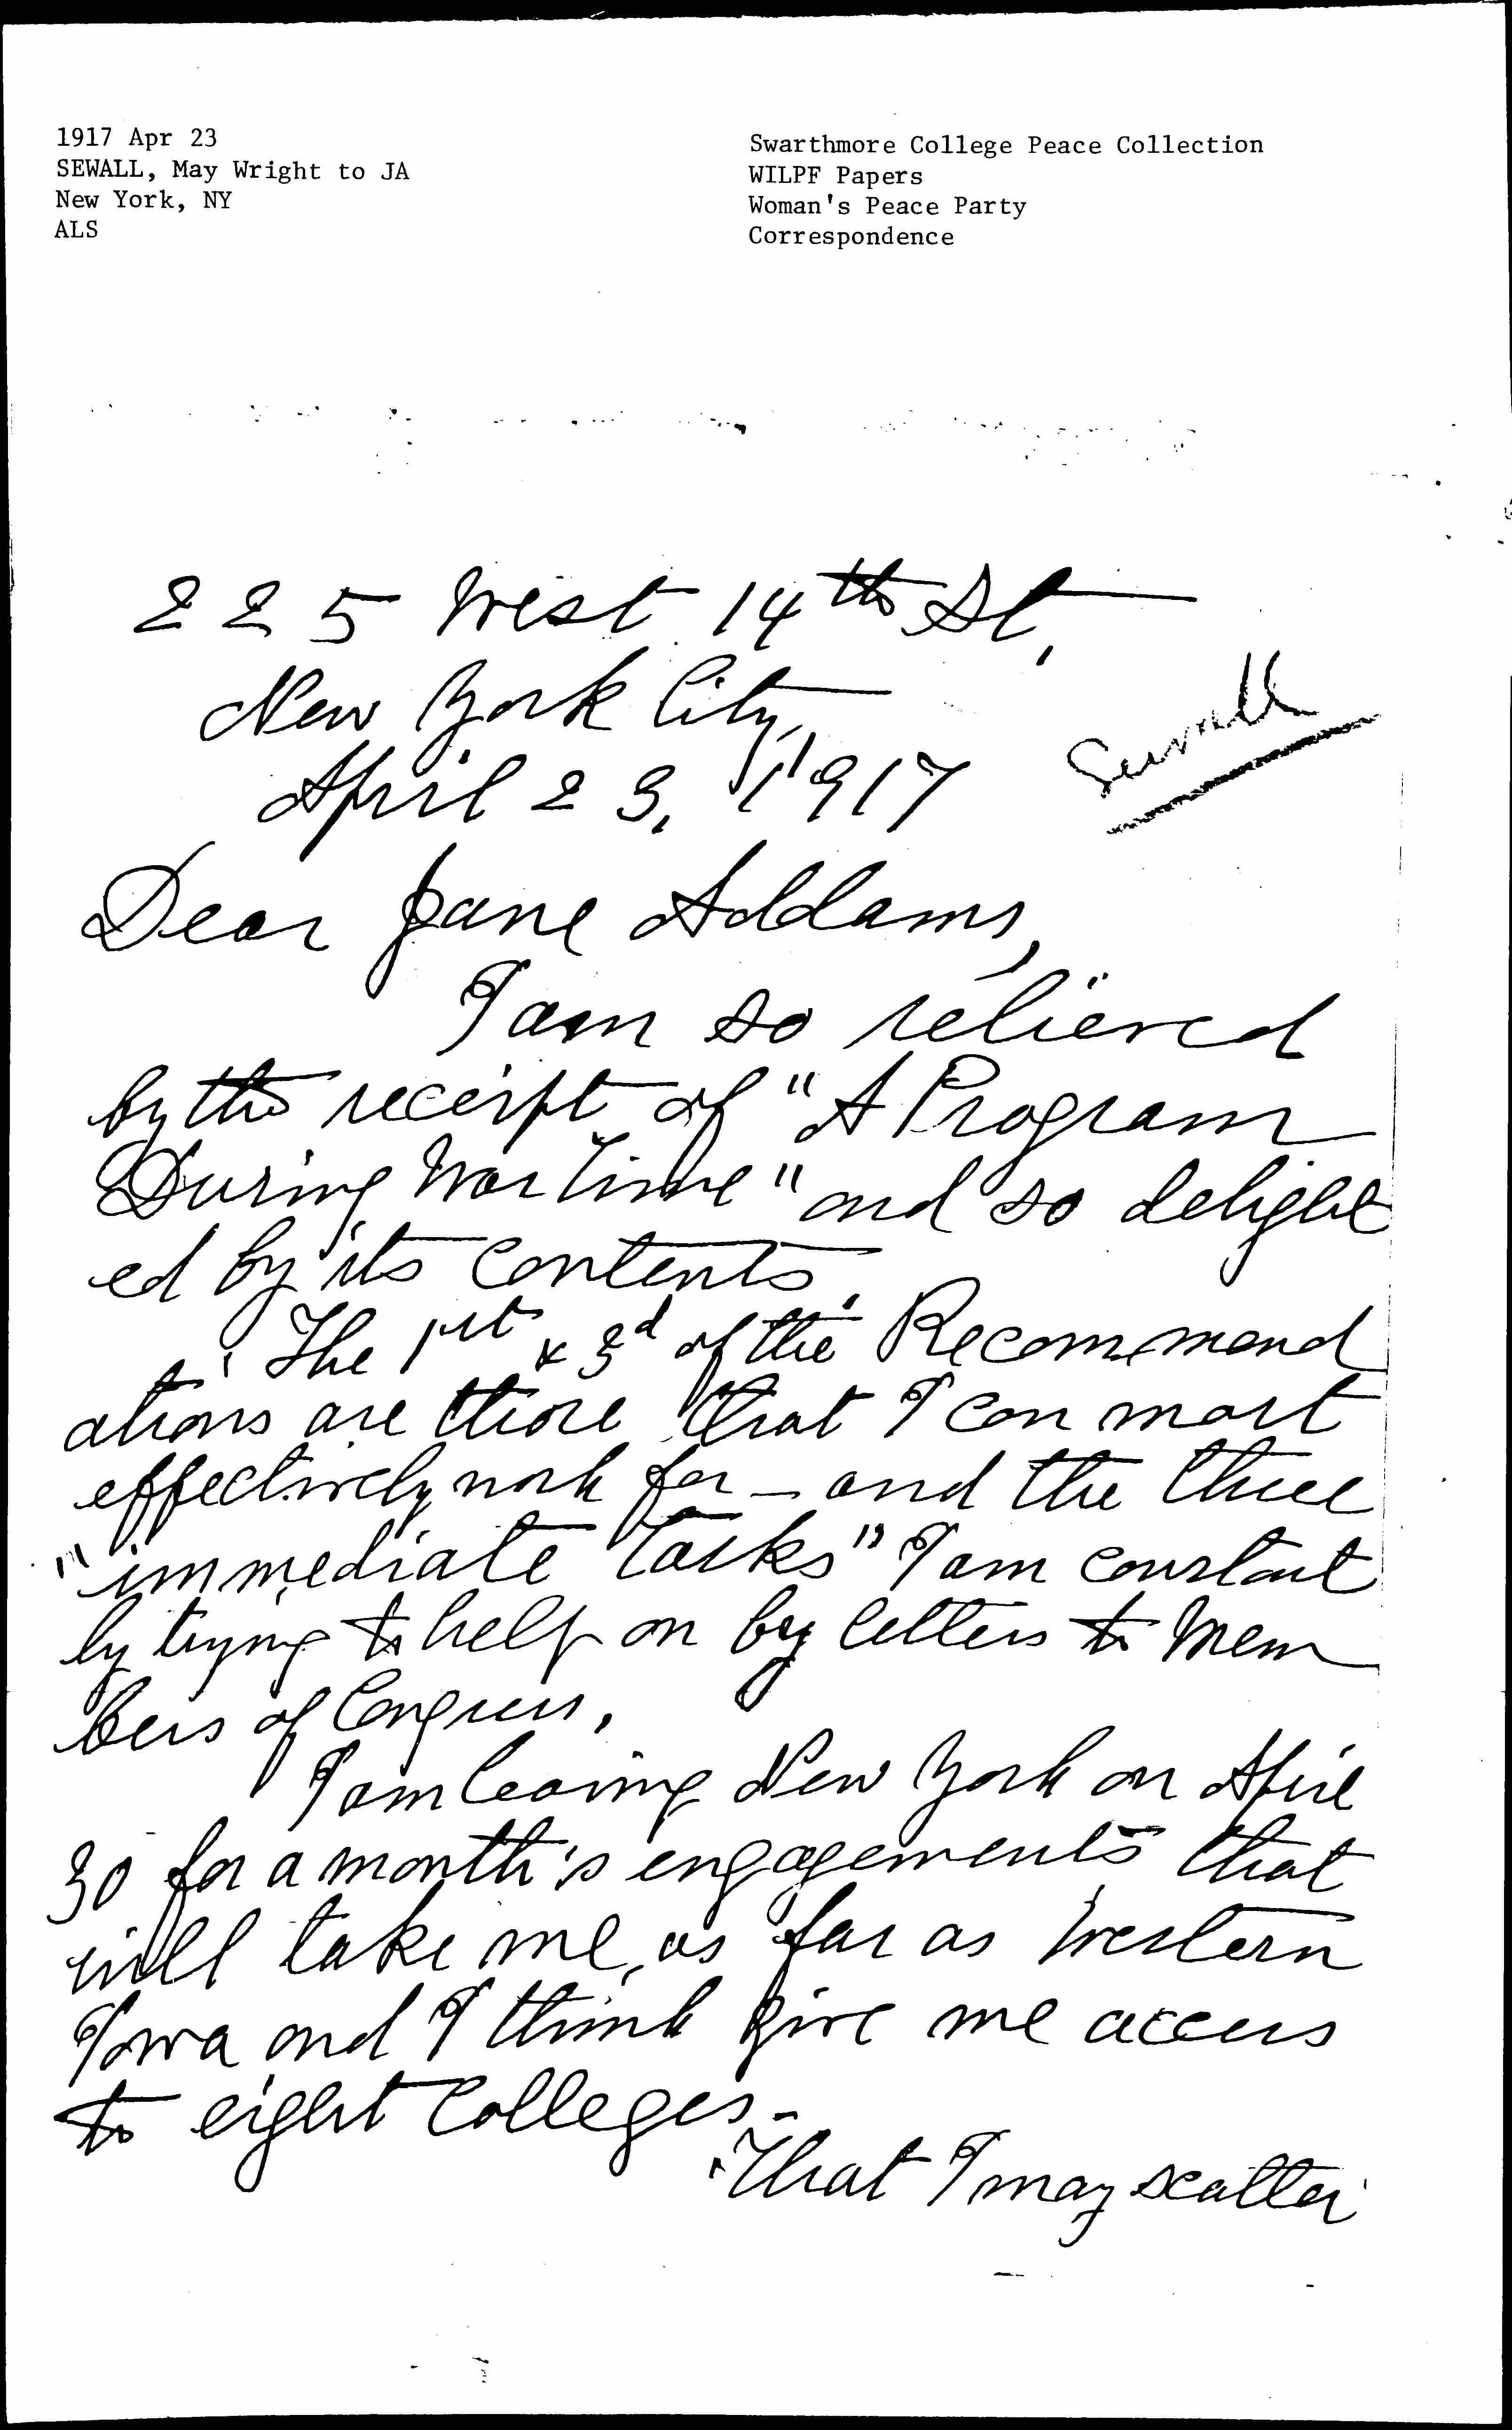 1917 Apr 23
SEWALL, May Wright to JA
New York, NY
ALS
Swarthmore College Peace Collection
WILPF Papers
Woman's Peace Party
Correspondence
225 West 14th St,
New York City,
April 23, 1917
Sewall
Dear Jane Addams,
I am so relieved
by the receipt of "A Program
During War Time" and so delight
ed by its contents.
The 1st & 3d of the Recommend
ations are those that I can most
effectively work for – and the three
"immediate tasks" I am constant
ly trying to help on by letters to Mem
bers of Congress.
I am leaving New York on April
30 for a month's engagements that
will take me as far as Western
Iowa and I think give me access
to eight Colleges –
That I may scatter